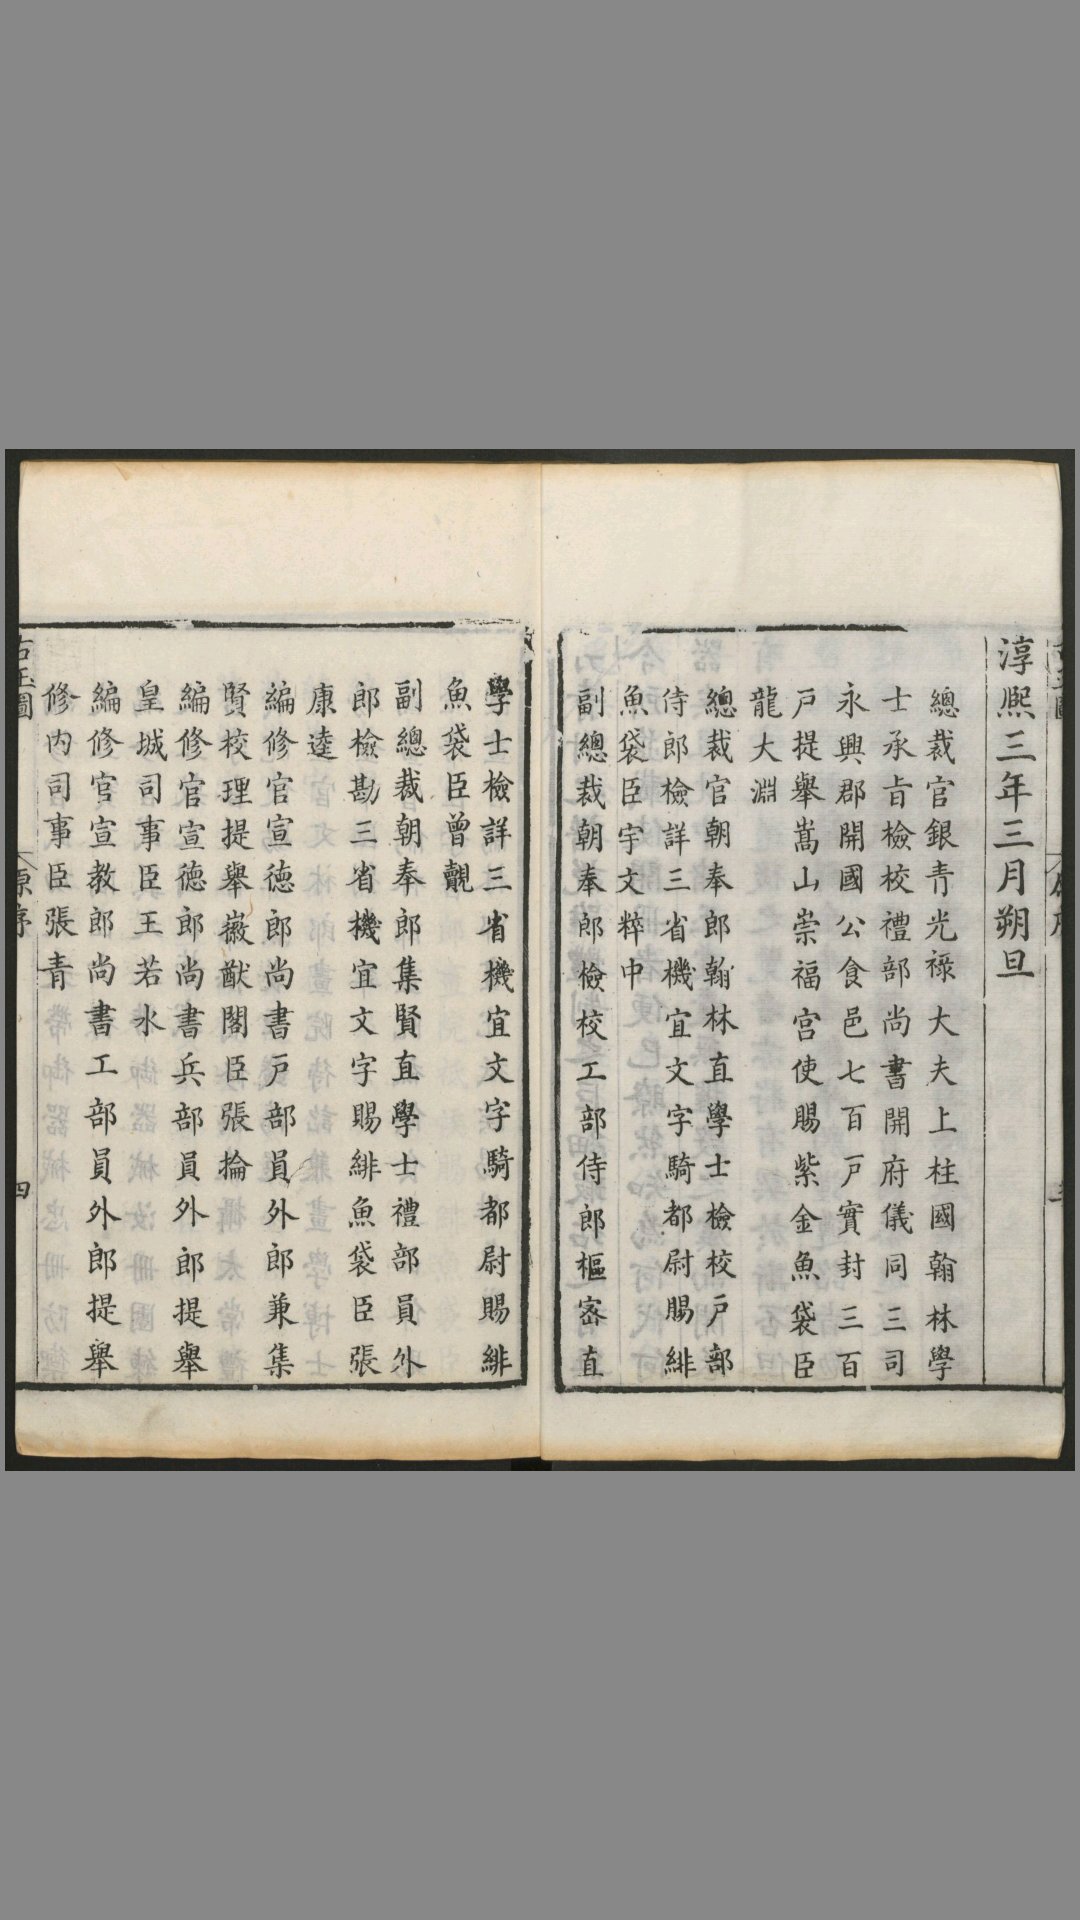 淳熙三年三月朔旦
總裁官銀青光祿大夫上柱國翰林學
士承旨檢校禮部尚書開府儀同三司
永興郡開國公食邑七百戸實封三百
戸提舉嵩山崇福宮使賜紫金魚袋臣
龍大淵
總裁官朝奉郎翰林直學士檢校戸部
侍郎檢詳三省機宜文字騎都尉賜緋
魚袋臣宇文粹中
副總裁朝奉郎檢校工部侍郎樞密直
學士檢詳三省機宜文字騎都尉賜緋
魚袋臣曾覿
副總裁朝奉郎集賢直學士禮部員外
郎檢勘三省機宜文字賜緋魚袋臣張
康逵
編修官宣徳郎尚書戸部員外郎兼集
賢校理提舉嶶猷閣臣張掄
編修官宣徳郎尚書兵部員外郎提舉
皇城司事臣王若水
編修官宣教郎尚書工部員外郎提舉
修内司事臣張青
古玉圖
原序
四